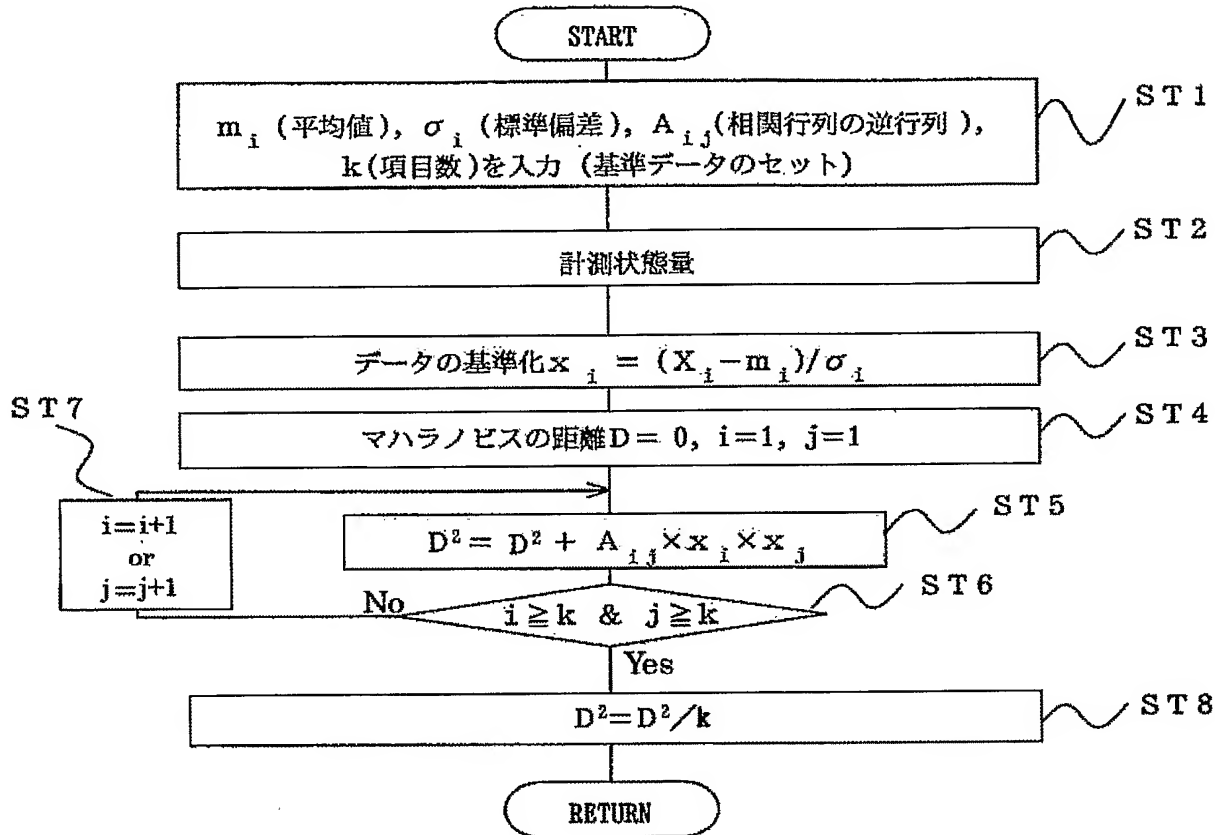 START
ST1
m_i (平均値), σ_i (標準偏差), A_ij(相関行列の逆行列),
k(項目数)を入力 (基準データのセット)
ST2
計測状態量
ST3
データの基準化x_i = (X_i-m_i)/σ_i
ST4
マハラノビスの距離D= 0, i=1, j=1
ST7
i=i+1
or
j=j+1
ST5
D²= D² + A_ij×x_i×x_j
ST6
i≧k & j≧k
No
Yes
ST8
D²=D²/k
RETURN